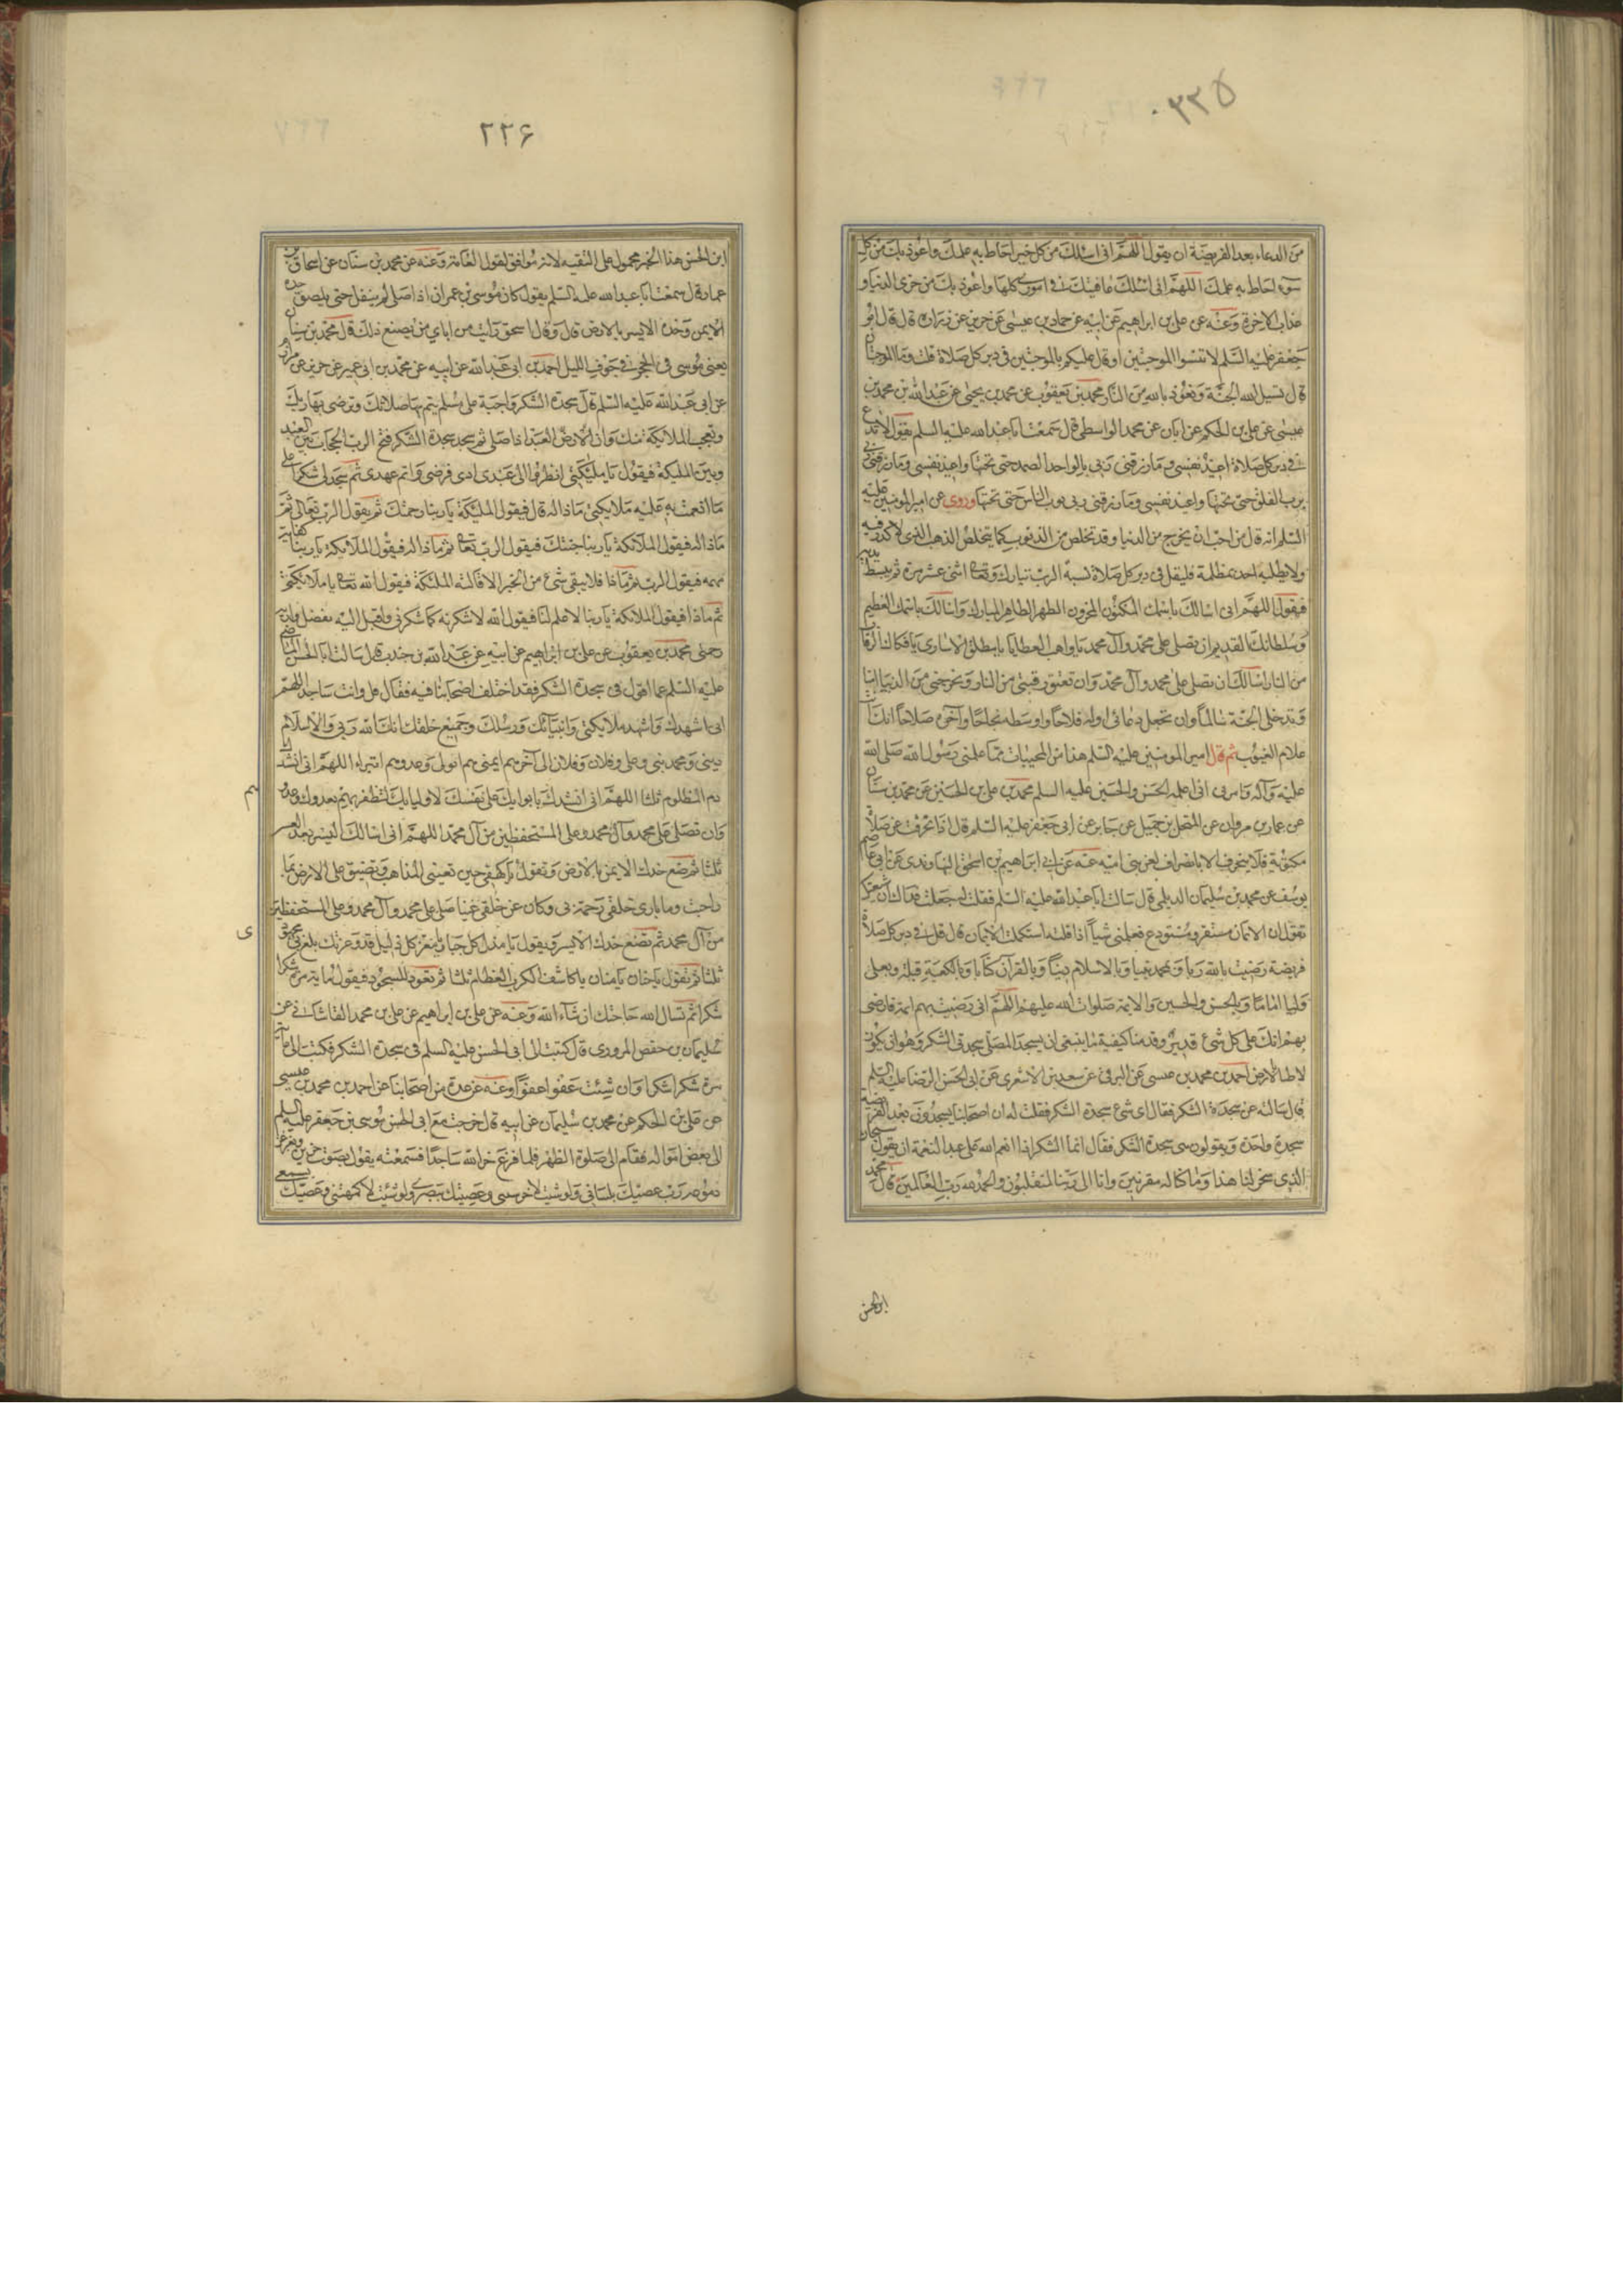 ۲۲۵
من الدعاء بعد الفريضة ان يقول اللهم انى اسئلك من كل خير احاط به علمك واعوذ بك من كل
سوء احاط به علمك اللهم انى اسئلك عافيتك فى امورى كلها واعوذ بك من خزى الدنيا و
عذاب الاخرة وعنه عن على بن ابراهيم عن ابيه عن حماد بن عيسى عن حريز عن زرارة قال قال ابو
جعفر عليه السلم لا تنسوا الموجبتين او قال عليكم بالموجبتين فى دبر كل صلاة قلت وما الموجبتان
قال تسيل الله الجنة وتعوذ بالله من النار محمد بن يعقوب عن محمد بن يحيى عن عبد الله بن محمد بن
عيسى عن على بن الحكم عن ابان عن محمد الواسطى قال سمعت ابا عبد الله عليه السلم يقول لا تدع
فى دبر كل صلاة اعيذ نفسى وما رزقنى ربى بالواحد الصمد حتى تختمها واعيذ نفسى وما رزقنى ربى
برب الفلق حتى تختمها واعيذ نفسى وما رزقنى ربى برب الناس حتى تختمها وروى عن امير المومنين عليه
السلم انه قال من احب ان يخرج من الدنيا وقد تخلص من الذنوب كما يتخلص الذهب الذى لا كدر فيه
ولا يطلبه احد بمظلمة فليقل فى دبر كل صلاة نسبة الرب تبارك وتعالى اثنى عشر مرة ثم يبسط يديه
فيقول اللهم انى اسالك باسمك المكنون المخزون الطهر الطاهر المبارك واسالك باسمك العظيم
وسلطانك القديم ان تصلى على محمد وآل محمد يا واهب العطايا يا مطلق الاسارى يا فكاك الرقاب
من النار اسالك ان تصلى على محمد وآل محمد وان تعتق رقبتى من النار وتخرجنى من الدنيا امنا
وتدخلنى الجنة سالما وان تجعل دعائى اوله فلاحا واوسطه نجاحا وآخره صلاحا انك انت
علام الغيوب ثم قال امير المومنين عليه السلم هذا من المخبيات مما علمنى رسول الله صلى الله
عليه وآله وامرنى ان اعلمه الحسن والحسين عليه السلم محمد بن على بن الحسين عن محمد بن سنان
عن عمار بن مروان عن المنخل بن جميل عن جابر عن ابى جعفر عليه السلم قال اذا انحرفت عن صلاة
مكتوبة فلا ينحرف الا بانصراف لعن بنى امية عنه عن ابراهيم بن اسحق النهاوندى عن ابى عاصم
يوسف عن محمد بن سليمان الديلمى قال سالت ابا عبد الله عليه السلم فقلت له جعلت فداك ان شيعتك
تقول ان الايمان مستقر ومستودع فعلمنى شيا اذا قلته استكملت الايمان قال قل فى دبر كل صلاة
فريضة رضيت بالله ربا وبمحمد نبيا وبالاسلام دينا وبالقرآن كتابا وبالكعبة قبلة وبعلى
وليا واماما وبالحسن والحسين والايمة صلوات الله عليهم اللهم انى رضيت بهم ايمة فارضنى
بهم انك على كل شئ قدير وقدمنا كيفية ما ينبغى ان يسجد المصلى سجدتى الشكر وهو ان يكون
لاطيا بالارض احمد بن محمد بن عيسى عن البرقى عن سعد بن الاشعرى عن ابى الحسن الرضا عليه السلم
قال سالته عن سجدة الشكر فقال اى شئ سجدة الشكر فقلت له ان اصحابنا يسجدون بعد الفريضة
سجدة واحدة ويقولون هى سجدة الشكر فقال انما الشكر اذا انعم الله على عبد النعمة ان يقول سبحان
الذى سخر لنا هذا وما كنا له مقرنين وانا الى ربنا لمنقلبون والحمد لله رب العالمين قال محمد
ابن الحسن
۲۲۶
ابن الحسن هذا الخبر محمول على التقيه لانه موافق لقول العامة وعنه عن محمد بن سنان عن اسحاق بن
عمار قال سمعت ابا عبد الله عليه السلم يقول كان موسى بن عمران اذا صلى لم ينفتل حتى يلصق خده
الايمن وخده الايسر بالارض قال وقال اسحق رايت من اباى من يصنع ذلك قال محمد بن سنان
يعنى موسى فى الحجر فى جوف الليل احمد بن ابى عبد الله عن ابيه عن محمد بن ابى عمير عن حريز عن مرازم
عن ابى عبد الله عليه السلم قال سجدة الشكر واجبة على مسلم يتم بها صلاتك وترضى بها ربك
وتعجب الملائكة منك وان العبد اذا صلى ثم سجد سجدة الشكر فتح الرب الحجاب بين العبد
وبين الملئكة فيقول يا ملئكتى انظروا الى عبدى ادى فرضى واتم عهدى ثم سجد لى شكرا على
ما انعمت به عليه ملائكتى ماذا له قال فيقول الملئكة يا ربنا رحمتك ثم يقول الرب تعالى ثم
ماذا له فيقول الملائكة يا ربنا جنتك فيقول الرب تعالى ثم ماذا له فيقول الملائكة يا ربنا كفاية
مهمه فيقول الرب ثم ماذا فلا يبقى شئ من الخير الا قالته الملئكة فيقول الله تعالى يا ملائكتى
ثم ماذا فيقول الملائكة يا ربنا لا علم لنا فيقول الله لاشكرنه كما شكرنى واقبل اليه بفضلى واريه
رحمتى محمد بن يعقوب عن على بن ابراهيم عن ابيه عن عبد الله بن جندب قال سالت ابا الحسن الماضى
عليه السلم عما اقول فى سجدة الشكر فقد اختلف اصحابنا فيه فقال قل وانت ساجد اللهم
انى اشهدك واشهد ملائكتك وانبيائك ورسلك وجميع خلقك انك الله ربى والاسلام
دينى ومحمد نبيى وعلى وفلان وفلان الى آخرهم ايمتى بهم اتولى ومن عدوهم اتبراء اللهم انى انشدك
دم المظلوم ثلثا اللهم انى انشدك بايوايك على نفسك لاوليايك لتظفرنهم بعدوك وعدوهم
وان تصلى على محمد وآل محمد وعلى المستحفظين من آل محمد اللهم انى اسالك اليسر بعد العسر
ثلثا ثم تضع خدك الايمن بالارض وتقول يا كهفى حين تعيينى المذاهب وتضيق على الارض بما
رحبت ويا بارى خلقى رحمة بى وكان عن خلقى غنيا صل على محمد وآل محمد وعلى المستحفظين
من آل محمد ثم تضع خدك الايسر ويقول يا مذل كل جبار ويا معز كل ذليل قد وعزتك بلغ بى مجهودى
ثلثا ثم تقول يا حنان يا منان يا كاشف الكرب العظام ثلثا ثم تعود للسجود فيقول مائة مرة شكرا
شكرا ثم تسال الله حاجتك ان شاء الله وعنه عن على بن ابراهيم عن على بن محمد القاشانى عن
سليمان بن حفص المروزى قال كتبت الى ابى الحسن عليه السلم فى سجدة الشكر فكتب الى مائة
مرة شكرا شكرا وان شئت عفوا عفوا وعنه عن عدة من اصحابنا عن احمد بن محمد بن عيسى
عن على بن الحكم عن محمد بن سليمان عن ابيه قال خرجت مع ابى الحسن موسى بن جعفر عليه السلم
الى بعض امواله فقام الى صلوة الظهر فلما فرغ خر لله ساجدا فسمعته يقول بصوت حزين وتغرغر
دموعه رب عصيتك بلسانى ولو شئت لاخرستنى وعصيتك ببصرى ولو شئت لاكمهتنى وعصيتك بسمعى